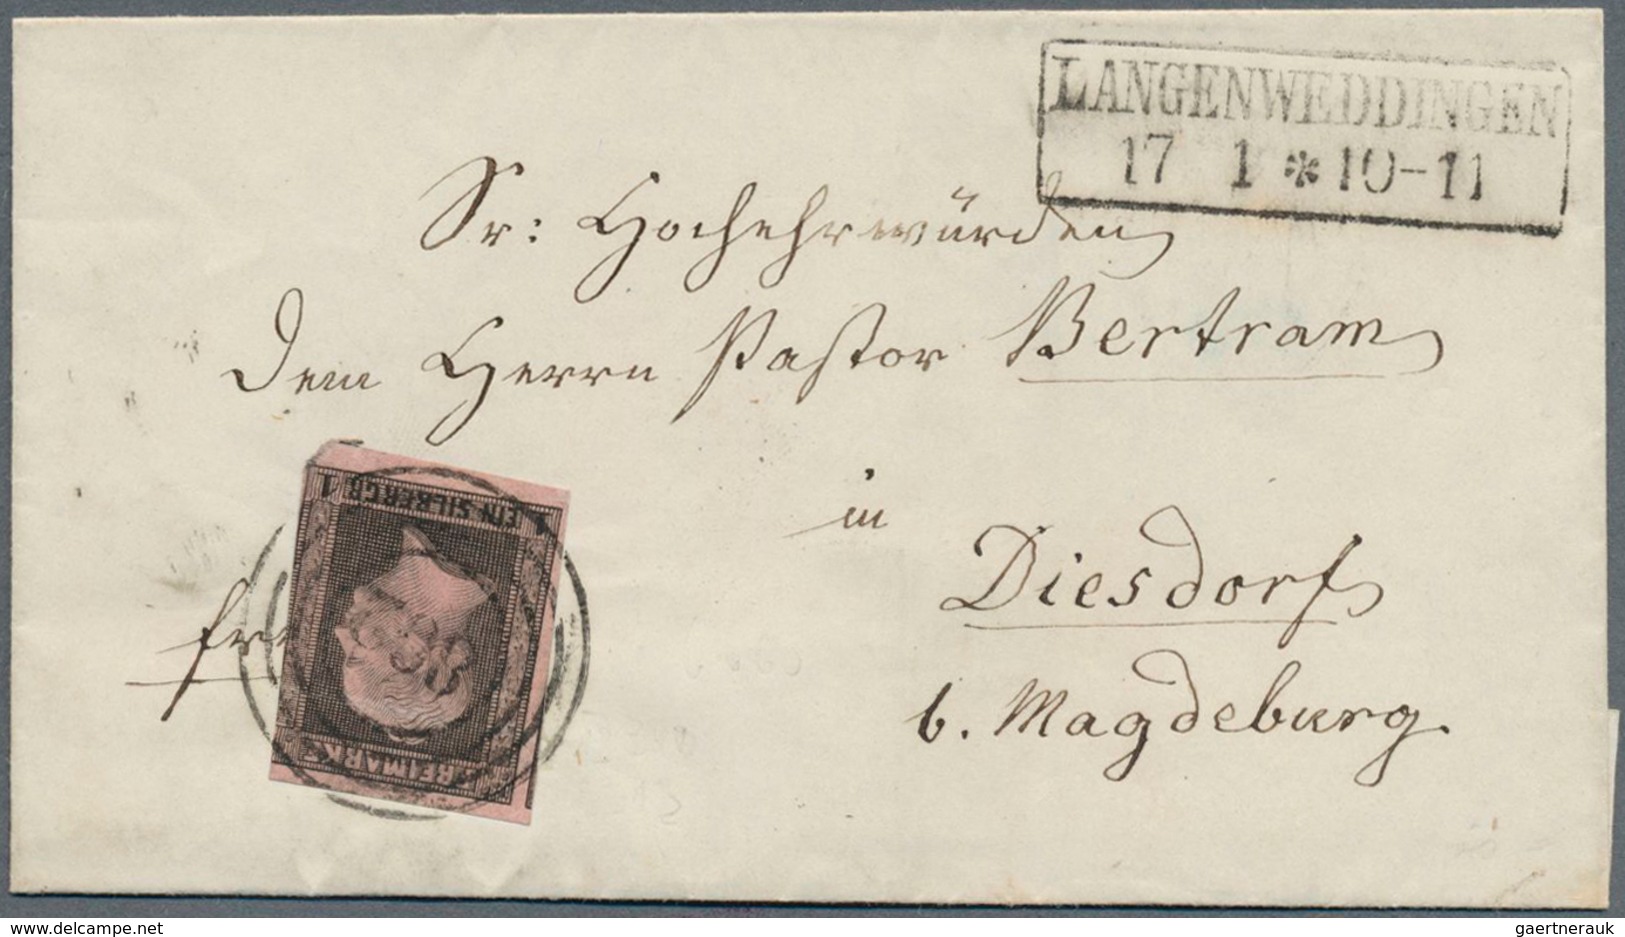 LANGENWEDDINGEN
17 1 * 10-11
Sr: Hochehrwürden
dem Herrn Pastor Bertram
in
Diesdorf
b. Magdeburg.
1 EIN SILBERGR. 1
FREIMARKE
delcampe.net
gaertnerauk